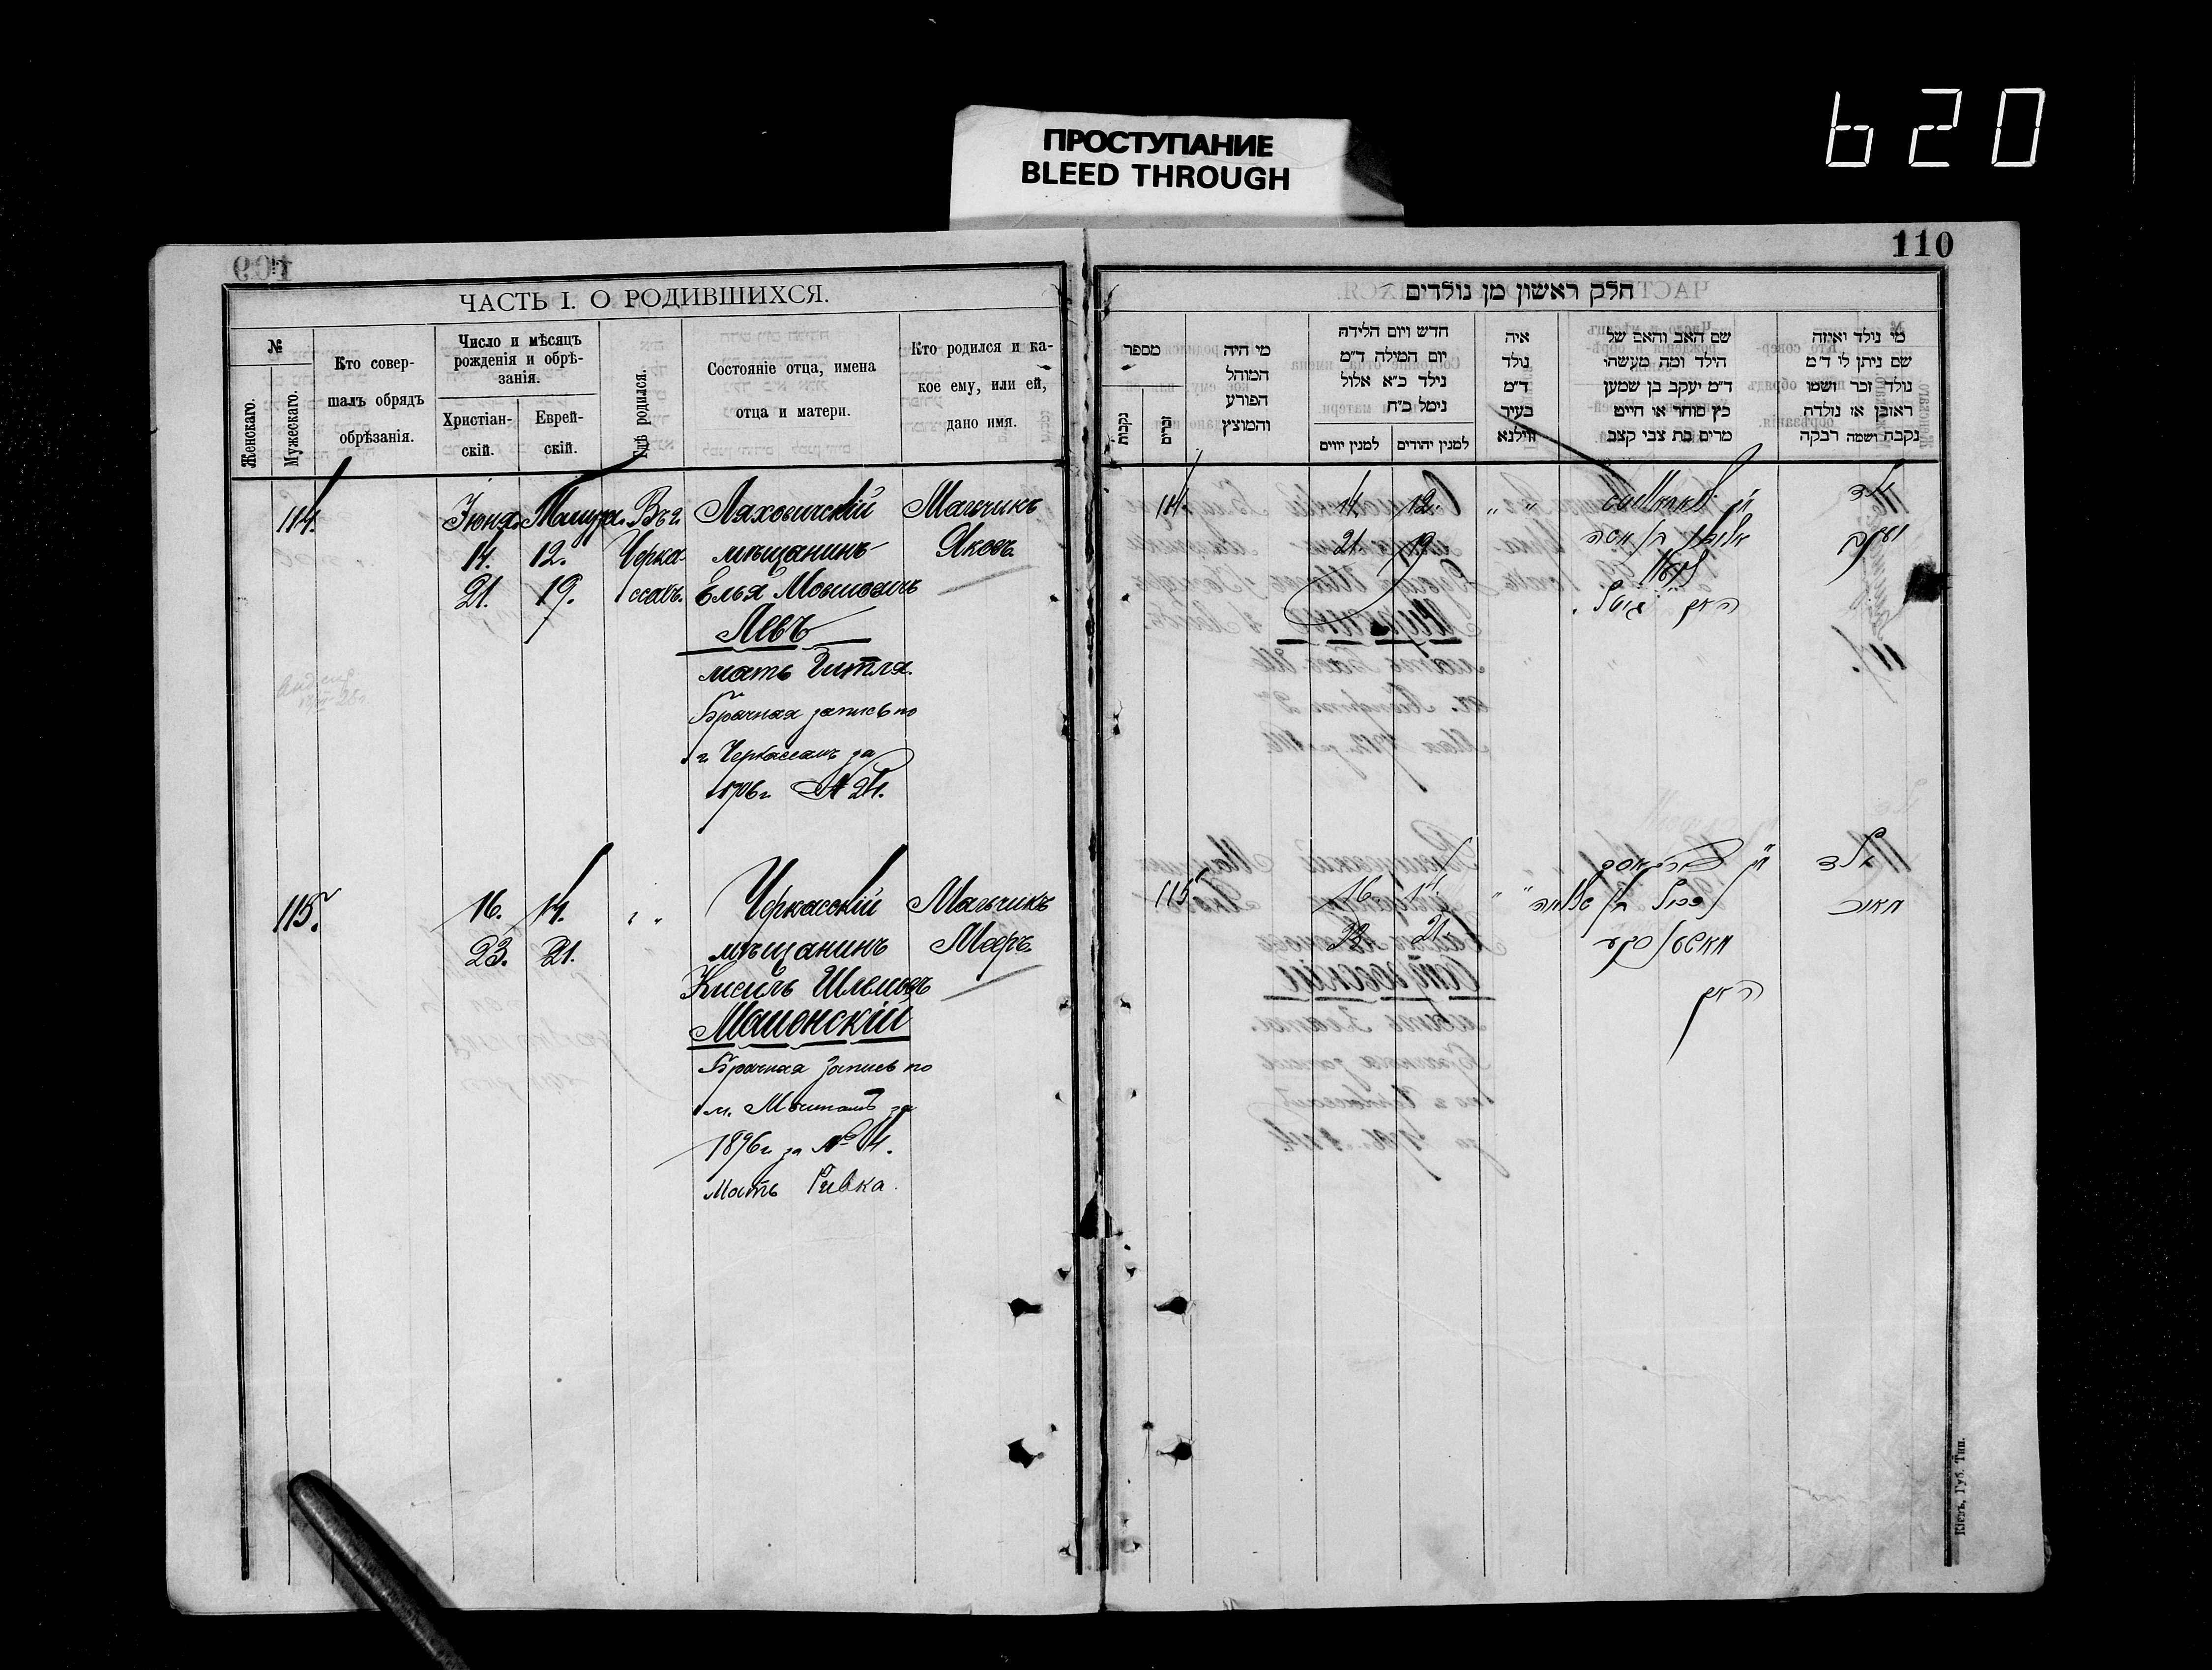 620
ПРОСТУПАНИЕ
BLEED THROUGH
110
ЧАСТЬ I. О РОДИВШИХСЯ.
№
Женскаго.
Мужескаго.
Кто совер-
шалъ обрядъ
обрѣзанія.
Число и мѣсяцъ
рожденія и обрѣ-
занія.
Христіан-
скій.
Еврей-
скій.
Гдѣ родился.
Состояніе отца, имена
отца и матери.
Кто родился и ка-
кое ему, или ей,
дано имя.
114.
Іюня
14.
21.
Тамуза
12.
19.
Въ г.
Черка-
ссахъ.
Ляховичскій
мѣщанинъ
Елья Мовшовичъ
Левъ
мать Гитля.
Брачная запись по
г. Черкассамъ за
1906 г. № 24.
Мальчикъ
Яковъ
115.
16. 14.
23. 21.
" "
Черкасскій
мѣщанинъ
Кисиль Шлемовъ
Машенскій
Брачная запись по
м. за
1896 г за № 4.
Мать Ривка.
Мальчикъ
Меэръ
חלק ראשון מן נולדים
מספר
נקבות
זכרים
מי היה
המוהל
הפורע
והמוצץ
חדש ויום הלידה
יום המילה ד״מ
נילד כ״א אלול
נימל כ״ח
למנין יווים
למנין יהודים
איה
נולד
ד״מ
בעיר
ווילנא
שם האב והאם של
הילד ומה מעשהו
ד״מ יעקב בן שמעון
כץ סוחר או חייט
מרים בת צבי קצב
מי נולד ואיזה
שם ניתן לו ד״מ
נולד זכר ושמו
ראובן או נולדה
נקבה ושמה רבקה
114.
14. 12.
21 19
" "
בן משה
האם
ילד
יעקב
115
16 14.
23 21.
" "
בן שלמה
האם
ילד
מאיר
Кіевъ, Губ. Тип.